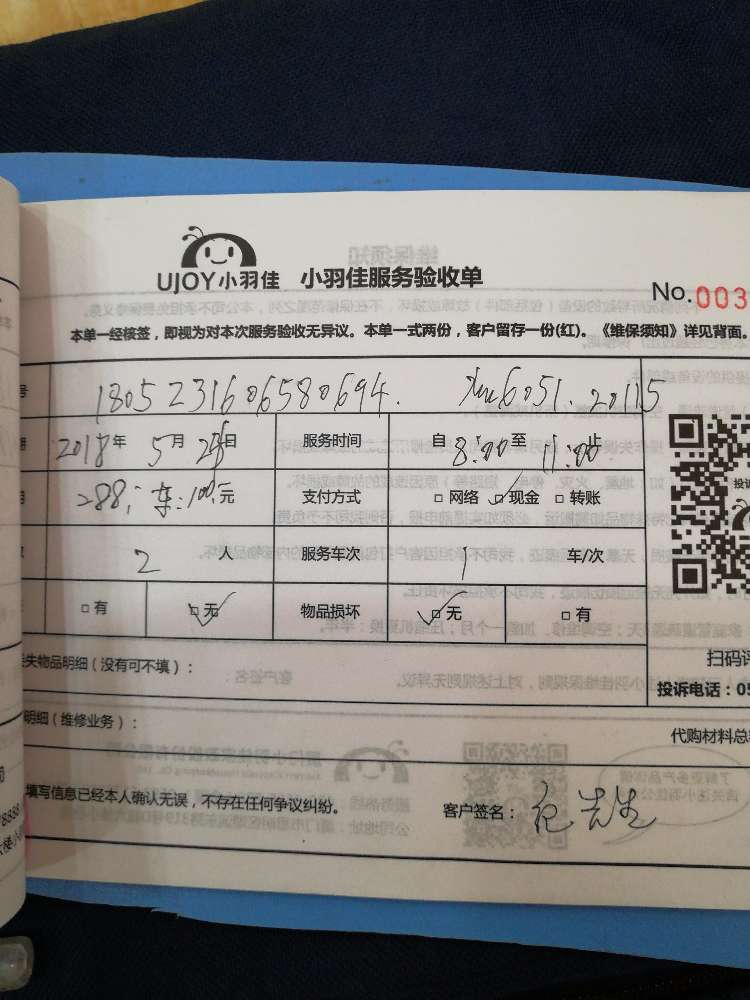 UJOY小羽佳 小羽佳服务验收单
No.003
本单一经核签，即视为对本次服务验收无异议。本单一式两份，客户留存一份(红)。《维保须知》详见背面。
号 1805231606580694. 6051.20115
2018年5月23日 服务时间 自8:00至11:00止
288, 车:100元 支付方式 □网络 ☑现金 □转账
2人 服务车次 1车/次
□有 ☑无 物品损坏 ☑无 □有
失物品明细（没有可不填）：
扫码评
投诉电话：05
明细（维修业务）：
代购材料总
填写信息已经本人确认无误，不存在任何争议纠纷。 客户签名：包先生
8888